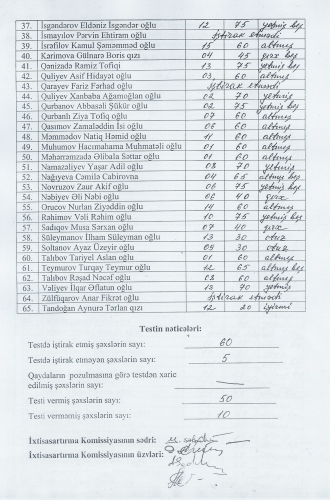 37. İsgəndərov Eldəniz İsgəndər oğlu 12 75 yetmiş beş
38. İsmayılov Pərvin Ehtiram oğlu iştirak etmədi
39. İsrəfilov Kamul Şəməmməd oğlu 15 60 altmış
40. Kərimova Gülnarə Boris qızı 04 45 qırx beş
41. Qənizadə Ramiz Tofiqi 13 75 yetmiş beş
42. Quliyev Asif Hidayət oğlu 03 60 altmış
43. Qarayev Fariz Fərhad oğlu iştirak etmədi
44. Quliyev Xanbaba Ağamoğlan oğlu 02 70 yetmiş
45. Qurbanov Abbasəli Şükür oğlu 02 75 yetmiş beş
46. Qurbanlı Ziya Tofiq oğlu 07 60 altmış
47. Qasımov Zamaləddin İsi oğlu 06 60 altmış
48. Məmmədov Natiq Həmid oğlu 11 60 altmış
49. Muhumov Hacıməhəmə Muhmətəli oğlu 01 60 altmış
50. Məhərrəmzadə Əlibala Səttar oğlu 01 60 altmış
51. Namazəliyev Yaşar Adil oğlu 08 70 yetmiş
52. Nağıyeva Cəmilə Cabirovna 04 65 altmış beş
53. Novruzov Zaur Akif oğlu 06 75 yetmiş beş
54. Nəbiyev Əli Nəbi oğlu 06 40 qırx
55. Orucov Nurlan Ziyəddin oğlu 14 60 altmış
56. Rəhimov Vəli Rəhim oğlu 10 75 yetmiş beş
57. Sadıqov Musa Sərxan oğlu 07 40 qırx
58. Süleymanov İlham Süleyman oğlu 13 30 otuz
59. Soltanov Ayaz Üzeyir oğlu 09 30 otuz
60. Talıbov Tariyel Aslan oğlu 01 60 altmış
61. Teymurov Turqay Teymur oğlu 12 65 altmış beş
62. Talıbov Rəşad Nəcəf oğlu 02 60 altmış
63. Vəliyev İlqar Əflatun oğlu 13 70 yetmiş
64. Zülfüqarov Anar Fikrət oğlu iştirak etmədi
65. Tandoğan Aynurə Tərlan qızı 12 20 iyirmi
Testin nəticələri:
Testdə iştirak etmiş şəxslərin sayı: 60
Testdə iştirak etməyən şəxslərin sayı: 5
Qaydaların pozulmasına görə testdən xaric
edilmiş şəxslərin sayı: —
Testi vermiş şəxslərin sayı: 50
Testi verməmiş şəxslərin sayı: 10
İxtisasartırma Komissiyasının sədri:
İxtisasartırma Komissiyasının üzvləri: